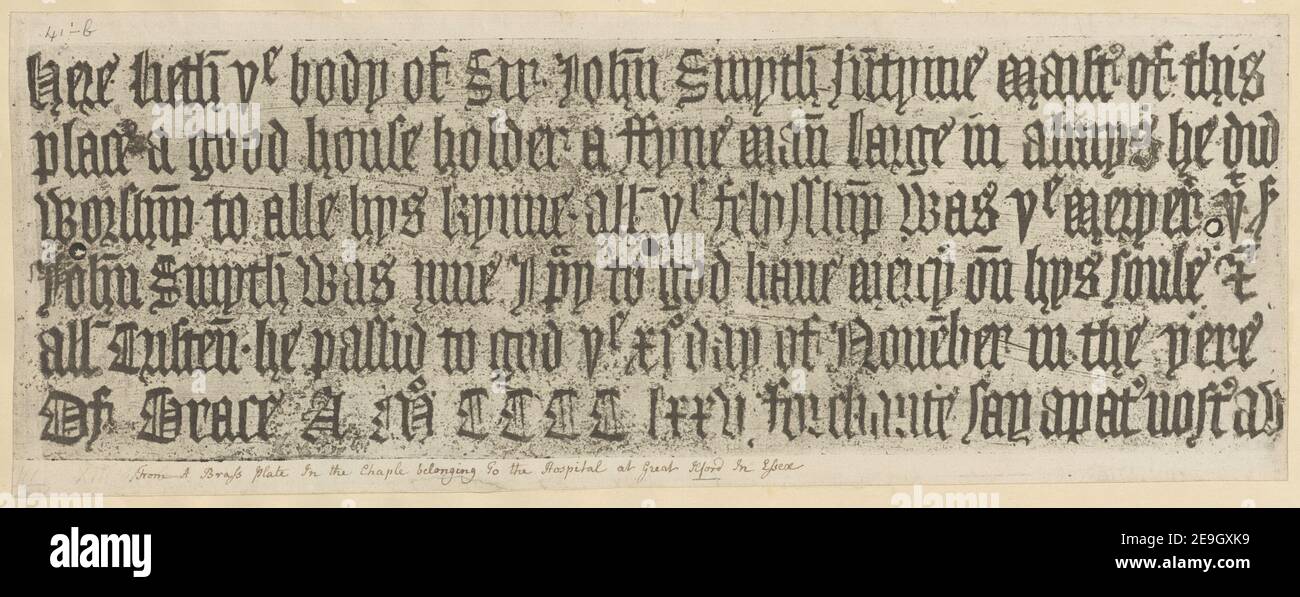 41-b
Here lieth yͤ body of Sir John Smyth sūtyme maistʳ of this
place a good house holder a ffyne mañ large in almys he did
Worship̄ to alle hys kynne all yͤ felysship̄ Was yͤ meryer̄ yͭ Sʳ
John̄ Smyth̄ Was ynne I p̄y to god haue mercy on̄ hys soule &
all Cristen̄ he passid to god yͤ xi day of Nouēber in the yere
Of Grace A Mͦ CCCC lxxv for charite say a patʳ nostʳ av
From A Brass Plate In the Chaple belonging To the Hospital at Great Ilford In Essex
alamy
a
alamy
Image ID: 2E9GXK9
www.alamy.com